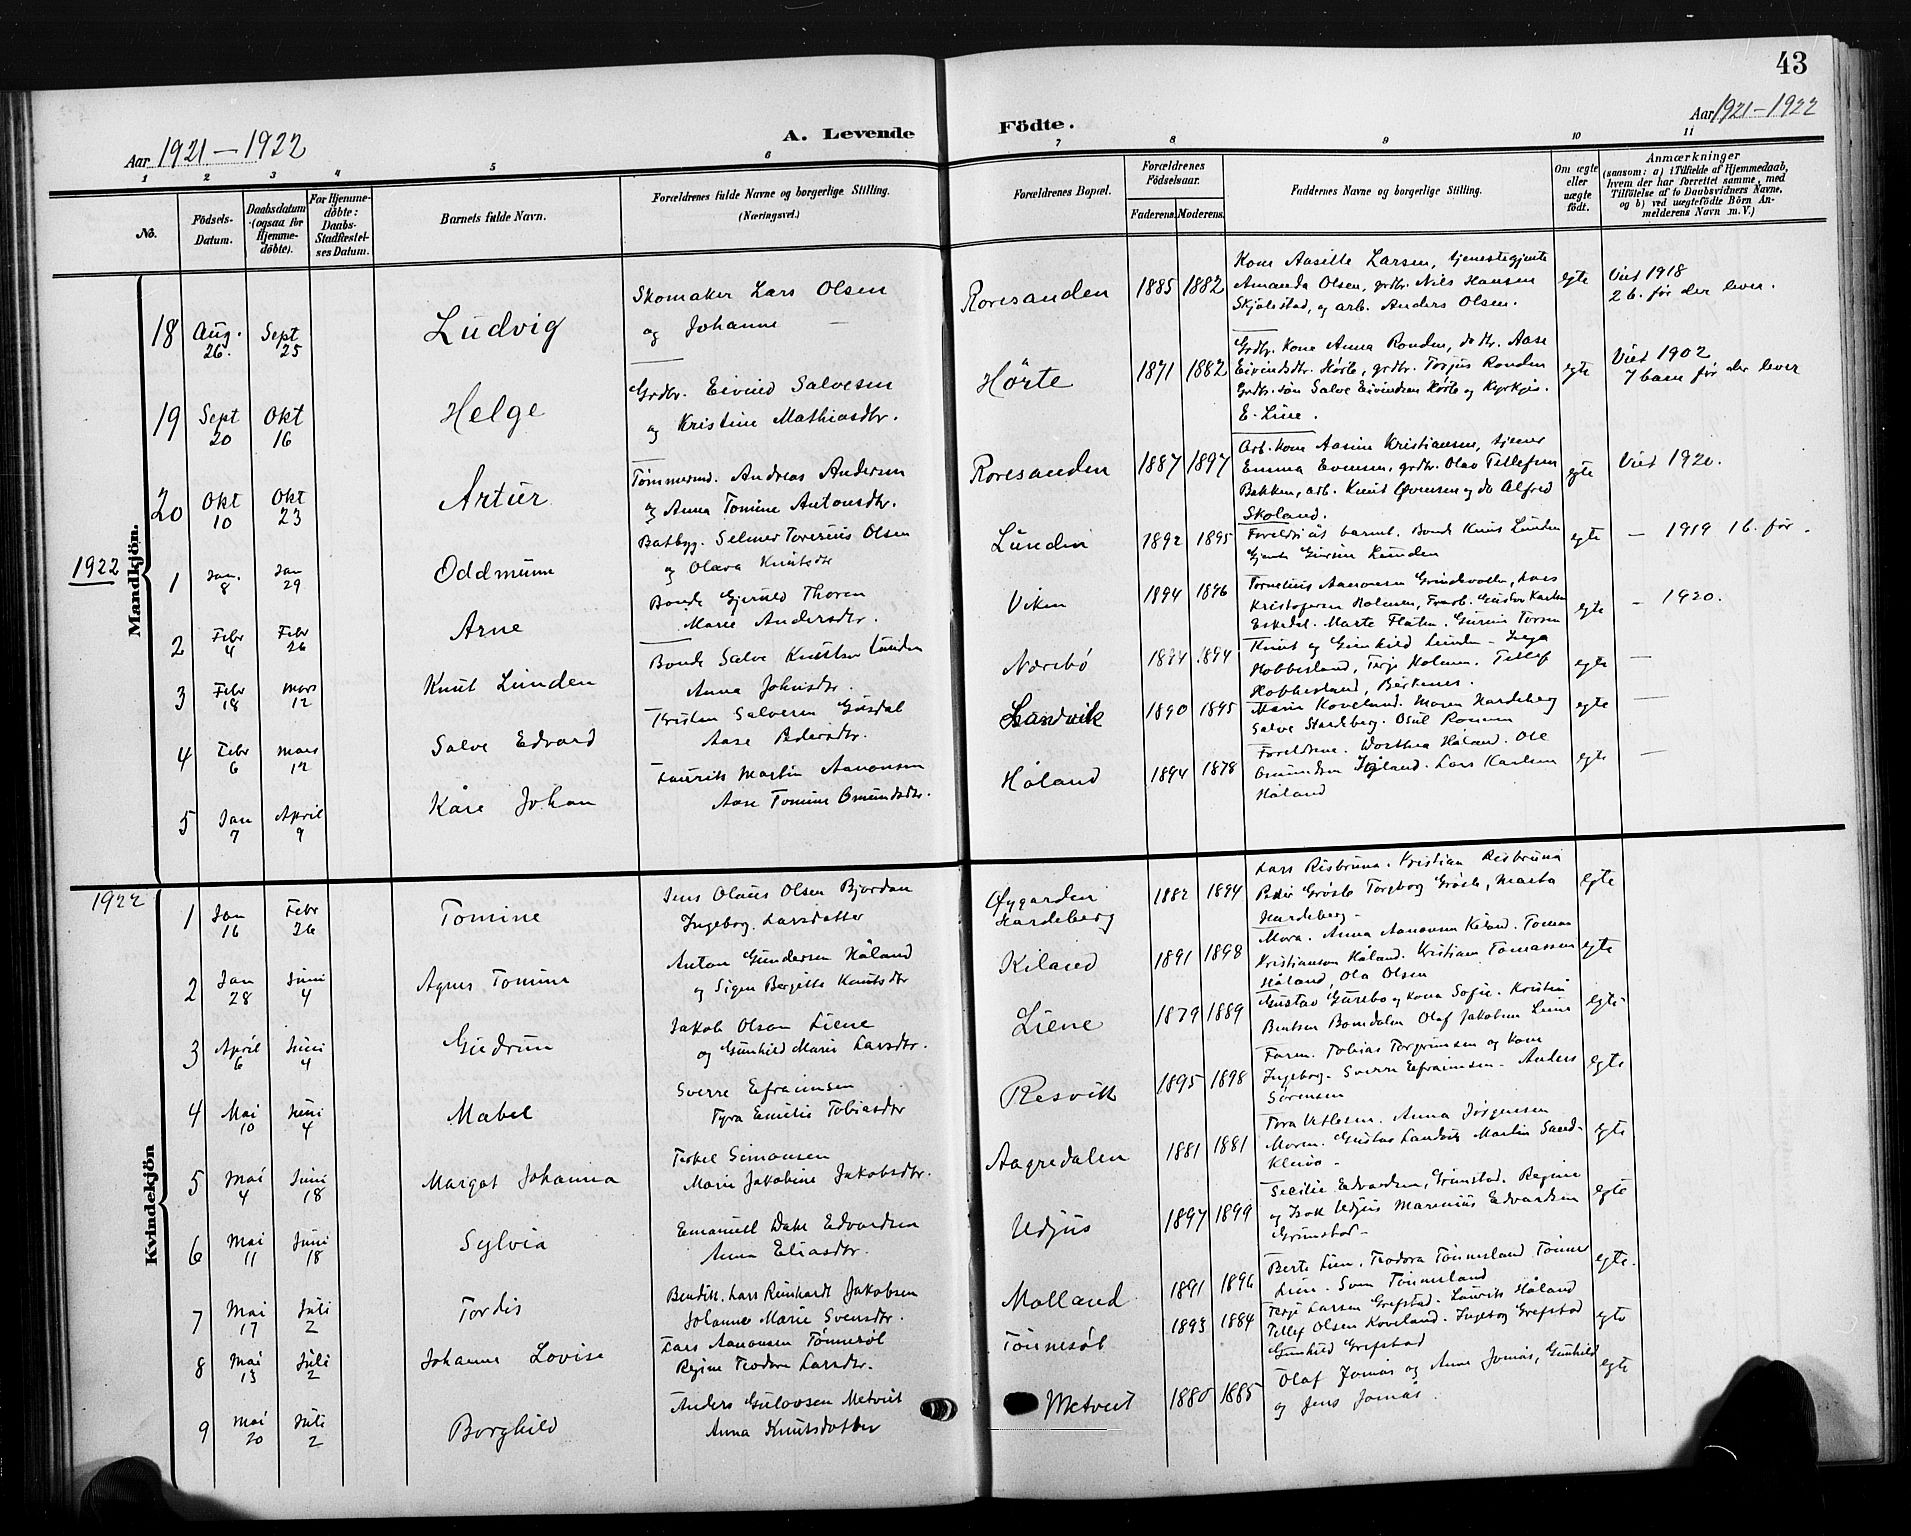 43
Aar 1921-1922
A. Levende Födte.
Aar 1921-1922
1 2 3 4 5 6 7 8 9 10 11
No.
Födsels-Datum.
Daabsdatum (ogsaa for Hjemme-döbte).
For Hjemme-döbte: Daabs-Stadfæstel-ses Datum.
Barnets fulde Navn.
Forældrenes fulde Navne og borgerlige Stilling.
(Næringsvei.)
Forældrenes Bopæl.
Forældrenes Födselsaar.
Faderens. Moderens.
Faddernes Navne og borgerlige Stilling.
Om ægte eller uægte födt.
Anmærkninger
(saasom: a) i Tilfælde af Hjemmedaab,
hvem der har forrettet samme, med
Tilföielse af to Daabsvidners Navne,
og b) ved uægtefödte Börn An-
melderens Navn m. V.)
Mandkjön.
18 Aug. 26. Sept 25 Ludvig
Skomaker Lars Olsen
og Johanne —
Roresanden 1885 1882
Kone Aasille Larsen, tjenestegjente
Amanda Olsen, grdbr. Nils Hansen
Skjølestad, og arb. Anders Olsen.
egte
Viet 1918
2 b. før der lever.
19 Sept 20 Okt 16 Helge
Grdbr. Eivind Salvesen
og Kristine Mathiasdtr.
Hörte 1871 1882
Grdbr. Kone Anna Ronden, do dtr. Aase
Eivindsdtr. Hörte, grdbr. Torjus Ronden
Grdbr. søn Salve Eivindsen Hörte og Kyrkjes.
E. Line.
egte
Viet 1902
7 barn før der lever
20 Okt 10 Okt 23 Artur
Tømmermd. Andreas Andersen
og Anna Tomine Antonsdtr.
Roresanden 1887 1897
Arb. kone Aasine Kristiansen, tjener
Emma Evensen, grdbr. Olav Tellefsen
Bakken, arb. Knut Øvensen og do Alfred
Skoland.
egte
Viet 1920.
1922
1 Jan. 8 Jan 29 Oddmunn
Batbyg. Selmer Torerius Olsen
og Olava Knutsdtr
Lunden 1892 1895
Foreldri åt barnet. Bonde Knut Lunden
Gjente Gurine Lunden
egte
— 1919 1 b. før.
2 Febr 4 Febr 26 Arne
Bonde Gjerulf Thoren
Marie Andersdtr.
Viken 1894 1896
Kristofersen Holmen, Gustav Karlsen
Eskedal. Marte Flaten. Gurine Torsen
egte
— 1920.
3 Febr 18 Mars 12 Knut Lunden
Bonde Salve Knutsen Lunden
Anna Johnsdtr.
Narebö 1894
Knut og Gunhild Lunden - Inga
Hobbesland, Terje Holmen. Tellef
Hobbesland, Birkenes.
egte
—
4 Febr 6 Mars 12 Salve Edvard
Kristen Salvesen Gusdal
Aase Pedersdtr.
Landvik 1890 1895
Marie Koveland. Maren Hardeberg
Salve Hardeberg. Osul Ronnen
egte
—
5 Jan 7 April 9 Kåre Johan
Laurits Martin Aanonsen
Aase Tomine Omundsdtr.
Håland 1894 1878
Foreldrene. Dorthea Håland. Ole
Omundsen Håland. Lars Karlsen
Håland
egte
—
1922
Kvindekjön
1 Jan 16 Febr 26 Tomine
Jens Olaus Olsen Bjordan
Ingeborg Larsdatter
Øygarden
Hardeberg 1882 1894
Lars Risbruna. Kristian Risbruna
Peder Grøsle Torgborg Grøsle, Marta
Hardeberg -
egte
2 Jan 28 Juni 4 Agnes Tomine
Anton Gundersen Håland
og Signe Bergitte Knutsdtr
Kiland 1891 1898
Mora. Anna Aanonsen Kiland. Tomas
Kristiansen Håland. Kristian Tomassen
Håland, Ola Olsen
egte
3 April 6 Juni 4 Gudrun
Jakob Olson Liene
og Gunhild Marie Larsdtr.
Liene 1879 1889
Gustav Gurebo og kona Sofie. Kristin
Bentsen Bomdalen Olaf Jakobsen Liene
egte
4 Mai 10 Juni 4 Mabel
Sverre Efraimsen
Tyra Emilie Tobiasdtr
Resvik 1895 1898
Faren. Tobias Torgrimsen og kone
Ingeborg. Sverre Efraimsen. Anders
Sörensen
egte
5 Mai 4 Juni 18 Margot Johanna
Terkel Simonsen
Marie Jakobine Jakobsdtr.
Aagredalen 1881 1881
Tora Vetlesen. Anna Jörgensen
Moren. Gustav Landvig Martin Sand-
kleiva -
egte
6 Mai 11 Juni 18 Sylvia
Emanuel Dahl Edvardsen
Anna Eliasdtr.
Udjus 1897 1899
Secilie Edvardsen, Grimstad. Regine
og Isak Udjus Marenius Edvardsen
Grimstad -
egte
7 Mai 17 Juli 2 Tordis
Bendik. Lars Reinhardt Jakobsen
Johanne Marie Svensdtr.
Molland 1891 1896
Berte Lien. Teodora Tönnesland Tönnes
Lien. Sven Tönnesland
egte.
8 Mai 13 Juli 2 Johanne Lovise
Lars Aanonsen Tønnesøl
Regine Teodora Larsdtr.
Tönnesöl 1893 1884
Terje Larsen Grefstad. Laurits Håland
Tellef Olsen Koveland. Ingeborg Grefstad
Gunhild Grefstad
egte
9 Mai 20 Juli 2 Borghild
Anders Gulovsen Metveit
Anna Knutsdatter
Metveit 1880 1885
Olaf Jomås og Anne Jomås, Gunhild
og Jens Jomås.
egte